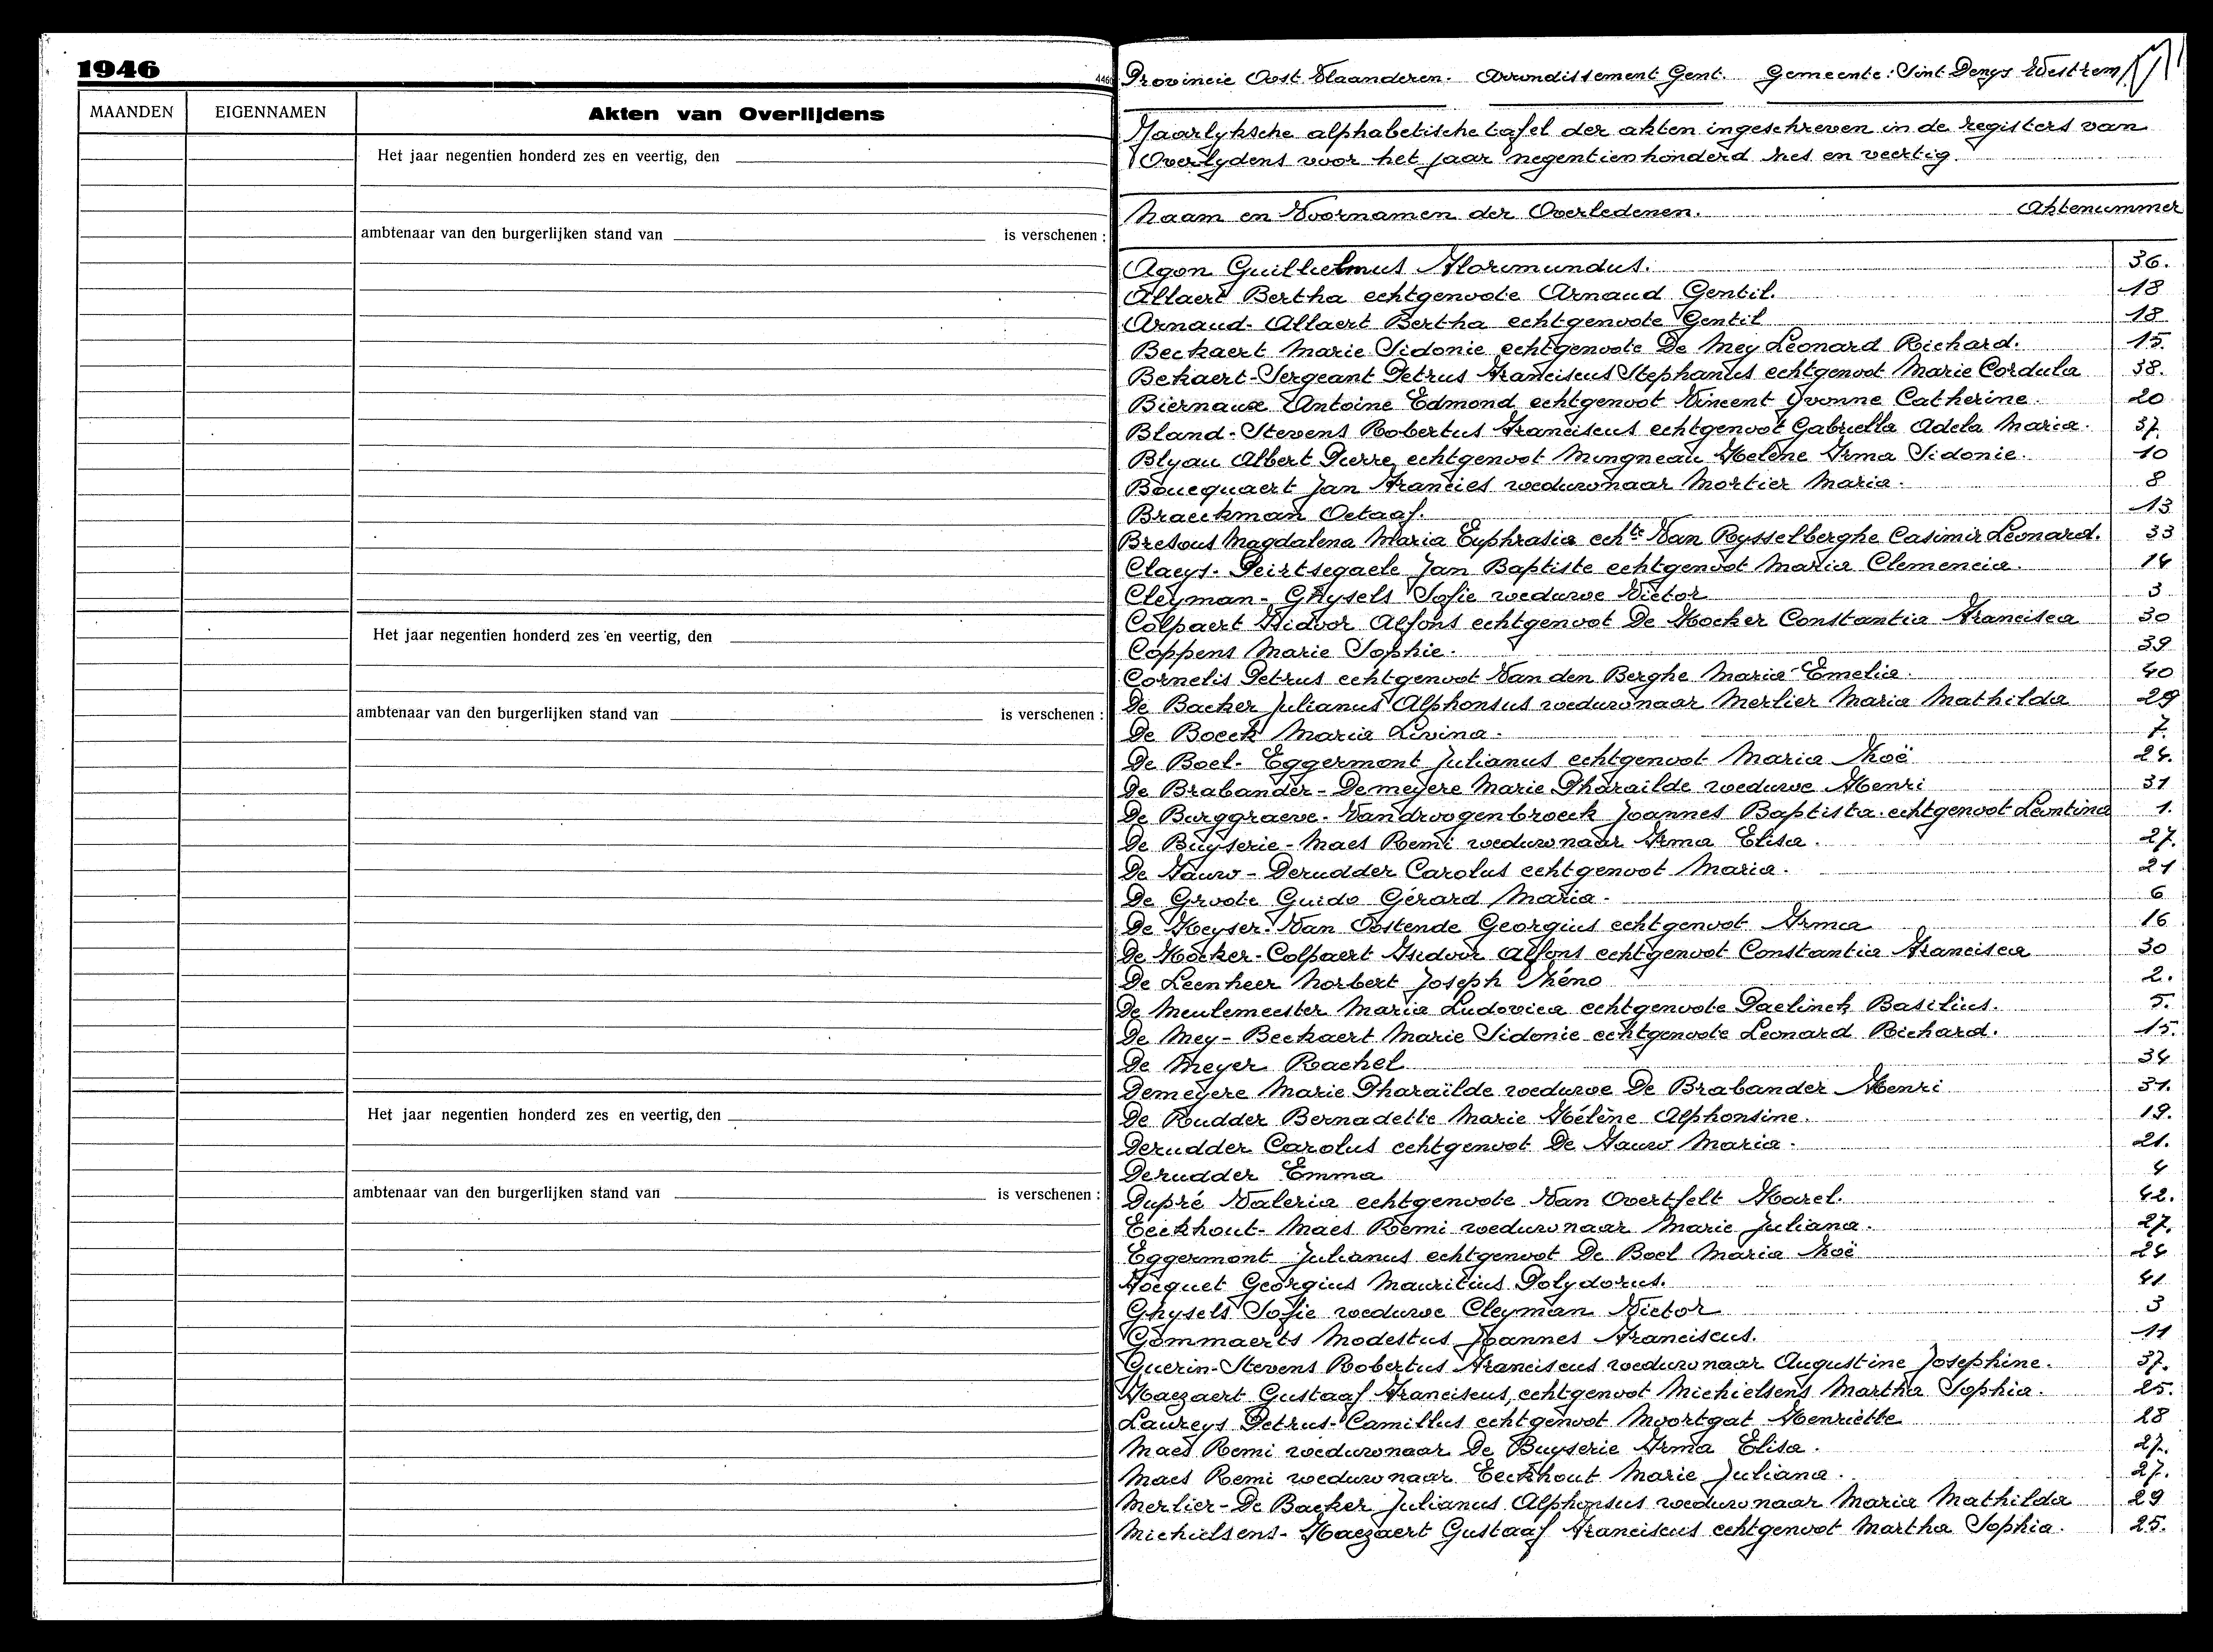 1946
MAANDEN EIGENNAMEN Akten van Overlijdens
Het jaar negentien honderd zes en veertig, den
ambtenaar van den burgerlijken stand van is verschenen :
Het jaar negentien honderd zes en veertig, den
ambtenaar van den burgerlijken stand van is verschenen :
Het jaar negentien honderd zes en veertig, den
ambtenaar van den burgerlijken stand van is verschenen :
Provincie Oost Vlaanderen. Arrondissement Gent. Gemeente: Sint Denys Westrem
Jaarlyksche alphabetische tafel der akten ingeschreven in de registers van
Overlydens voor het jaar negentienhonderd zes en veertig.
Naam en Voornamen der Overledenen. Aktenummer
Agon Guilhelmus Floremundus. 36.
Allaert Bertha echtgenoote Arnaud Gentil. 18
Arnaud-Allaert Bertha echtgenoote Gentil 18
Beckaert Marie Sidonie echtgenoote De Mey Leonard Richard. 15.
Bekaert-Sergeant Petrus Franciscus Stephanus echtgenoot Marie Cordula 38.
Biernaux Antoine Edmond echtgenoot Vincent Yvonne Catherine. 20
Bland-Stevens Robertus Franciscus echtgenoot Gabriella Adela Maria. 37.
Blyau Albert Pierre echtgenoot Mongneau Helène Irma Sidonie. 10
Boucquaert Jan Francies weduwnaar Mortier Maria. 8
Braeckman Octaaf. 13
Bresous Magdalena Maria Euphrasia echte Van Rysselberghe Casimir Leonard. 33
Claeys-Peirtsegaele Jan Baptiste echtgenoot Maria Clemencia. 14
Cleyman-Ghysels Sofie weduwe Victor 3
Colpaert Isidoor Alfons echtgenoot De Kocker Constantia Francisca 30
Coppens Marie Sophie. 39
Cornelis Petrus echtgenoot Van den Berghe Maria Emelia. 40
De Backer Julianus Alphonsus weduwnaar Merlier Maria Mathilda 29
De Boeck Maria Livina. 7.
De Boel-Eggermont Julianus echtgenoot Maria Zoë 24.
De Brabander-Demeyere Marie Pharailde weduwe Henri 31
De Burggraeve-Vandroogenbroeck Joannes Baptista echtgenoot Leontina 1.
De Buyserie-Maes Remi weduwnaar Irma Elisa. 27.
De Fauw-Derudder Carolus echtgenoot Maria. 21
De Groote Guido Gérard Maria. 6
De Keyser-Van Oostende Georgius echtgenoot Irma 16
De Kocker-Colpaert Isidoor Alfons echtgenoot Constantia Francisca 30
De Leenheer Norbert Joseph Zéno 2.
De Meulemeester Maria Ludovica echtgenoote Paelinck Basilius. 5.
De Mey-Beckaert Marie Sidonie echtgenoote Leonard Richard. 15.
De Meyer Rachel 34
Demeyere Marie Pharaïlde weduwe De Brabander Henri 31.
De Rudder Bernadette Marie Hélène Alphonsine. 19.
Derudder Carolus echtgenoot De Fauw Maria. 21.
Derudder Emma 4
Dupré Valeria echtgenoote Van Overtfelt Karel. 42.
Eeckhout-Maes Remi weduwnaar Marie Juliana. 27.
Eggermont Julianus echtgenoot De Boel Maria Zoë 24
Focquet Georgius Mauritius Polydorus. 41
Ghysels Sofie weduwe Cleyman Victor 3
Gommaerts Modestus Joannes Franciscus. 11
Guerin-Stevens Robertus Franciscus weduwnaar Augustine Josephine. 37.
Haezaert Gustaaf Franciscus, echtgenoot Michielsens Martha Sophia. 25.
Laureys Petrus-Camillus echtgenoot Moortgat Henriëtte 28
Maes Remi weduwnaar De Buyserie Irma Elisa. 27.
Maes Remi weduwnaar Eeckhout Marie Juliana. 27.
Merlier-De Backer Julianus Alphonsus weduwnaar Maria Mathilda 29
Michielsens-Haezaert Gustaaf Franciscus echtgenoot Martha Sophia. 25.